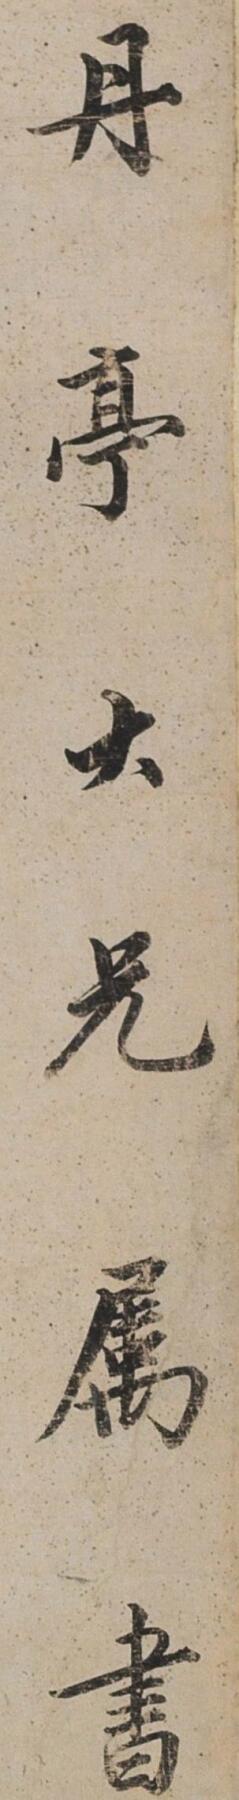 丹亭大兄属書